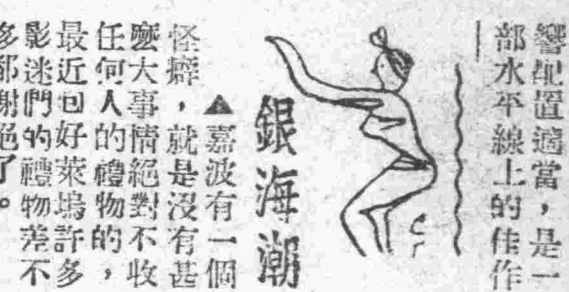 響配置適當，是一
部水平線上的佳作
銀海潮
▲嘉波有一個
怪癖，就是沒有甚
麼大事情絕對不收
任何人的禮物的，
最近包好萊塢許多
影迷們的禮物差不
多都謝絕了。